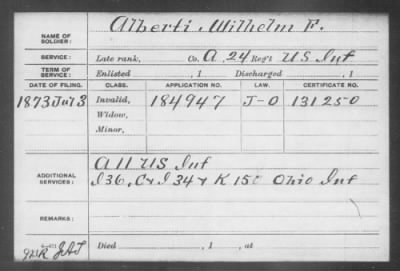 Alberti, Wilhelm F.
NAME OF SOLDIER:
SERVICE: Late rank, Co. A, 24 Reg't US Inf
TERM OF SERVICE: Enlisted , 1 Discharged , 1
DATE OF FILING. CLASS. APPLICATION NO. LAW. CERTIFICATE NO.
1873 Jul 3 Invalid, 184947 J-O 131250
Widow,
Minor,
A 11 US Inf
ADDITIONAL SERVICES: I 36, C & I 34 & K 150 Ohio Inf
REMARKS:
Died , 1 , at